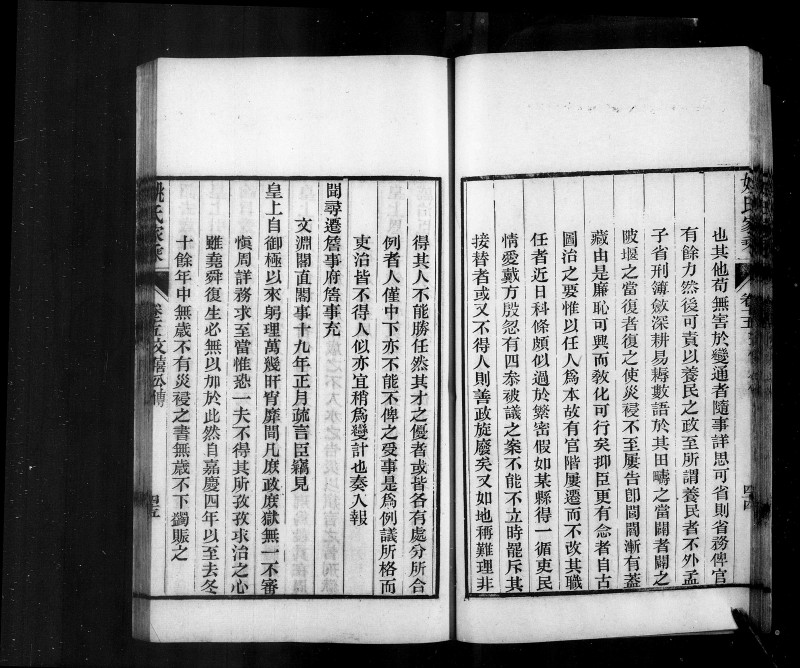 也其他苟無害於變通者隨事詳思可省則省務俾官
有餘力然後可責以養民之政至所謂養民者不外孟
子省刑簿斂深耕易耨數語於其田疇之當闢者闢之
陂堰之當復者復之使災祲不至屢告卽閭閻漸有蓋
藏由是廉恥可興而敎化可行矣抑臣更有念者自古
圖治之要惟以任人爲本故有官階屢遷而不改其職
任者近日科條頗似過於繁密假如某縣得一循吏民
情愛戴方殷忽有四叅被議之案不能不立時罷斥其
接替者或又不得人則善政旋廢矣又如地稱難理非
四四
得其人不能勝任然其才之優者或皆各有處分所合
例者人僅中下亦不能不俾之受事是爲例議所格而
吏治皆不得人似亦宜稍爲變計也奏入報
聞尋遷詹事府詹事充
文淵閣直閣事十九年正月疏言臣竊見
皇上自御極以來躬理萬幾旰宵靡間凡庶政庶獄無一不審
愼周詳務求至當惟恐一夫不得其所孜孜求治之心
雖堯舜復生必無以加於此然自嘉慶四年以至去冬
十餘年中無歲不有災祲之書無歲不下蠲賑之
姚氏家乘
卷五
四五